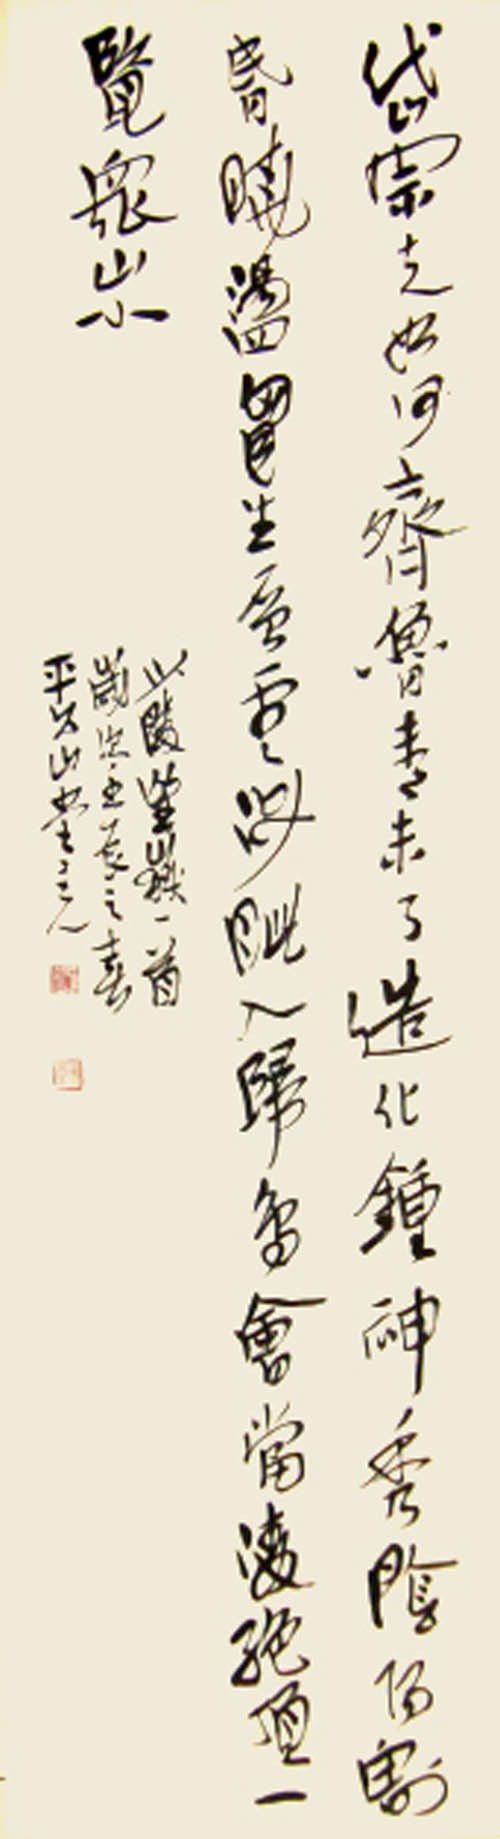 岱宗夫如何齊魯青未了造化鍾神秀陰陽割
昏曉盪胷生層雲決眥入歸鳥會當凌絕頂一
覽眾山小
少陵望嶽一首
歲次壬辰之春
平山堂主人